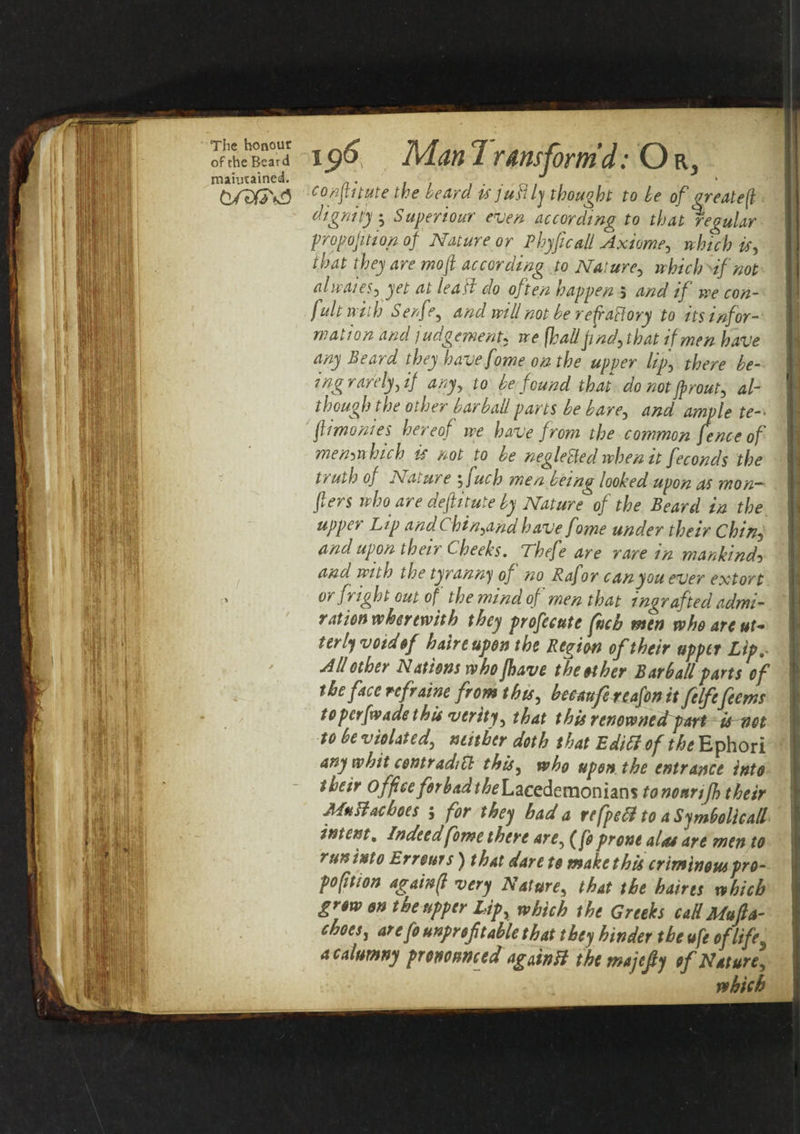 The honour
of the Beard
maintained.
196 Man Transform'd: OR,
conſtitute the beard is juſtly thought to be of greateſt
dignity; Superiour even according to that regular
propoſition of Nature or Phyſicall Axiome, which is,
that they are moſt according to Nature, which if not
alwaies, yet at leaſt do often happen; and if we con-
ſult with Senſe, and will not be refractory to its infor-
mation and judgement, we ſhall find, that if men have
any Beard they have ſome on the upper lip, there be-
ing rarely, if any, to be found that do not ſprout, al-
though the other barball parts be bare, and ample te-
ſtimonies hereof we have from the common ſence of
men, which is not to be neglected when it ſeconds the
truth of Nature; ſuch men being looked upon as mon-
ſters who are deſtitute by Nature of the Beard in the
upper Lip and Chin, and have ſome under their Chin,
and upon their Cheeks. Theſe are rare in mankind,
and with the tyranny of no Raſor can you ever extort
or fright out of the mind of men that ingrafted admi-
ration wherewith they proſecute ſuch men who are ut-
terly void of haire upon the Region of their upper Lip.
All other Nations who ſhave the other Barball parts of
the face refraine from this, becauſe reaſon it ſelfe ſeems
to perſwade this verity, that this renowned part is not
to be violated, neither doth that Edict of the Ephori
any whit contradict this, who upon the entrance into
their Office forbad the Lacedemonians to nouriſh their
Muſtachoes; for they had a reſpect to a Symbolicall
intent. Indeed ſome there are, (ſo prone alas are men to
run into Errours) that dare to make this criminous pro-
poſition againſt very Nature, that the haires which
grow on the upper Lip, which the Greeks call Muſta-
choes, are ſo unprofitable that they hinder the uſe of life,
a calumny pronounced againſt the majeſty of Nature,
which